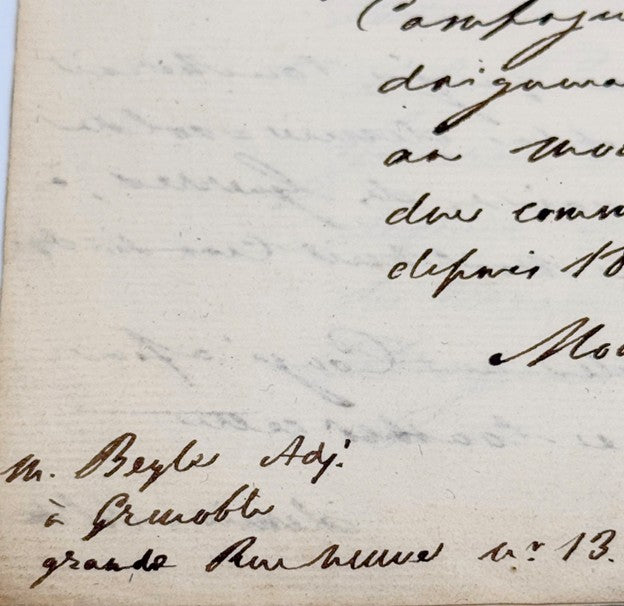 Campagn
daigner
au mo
due comm
depuis 18
Mo
M. Beyle Adj.
à Grenoble
grande Rue neuve nº 13.